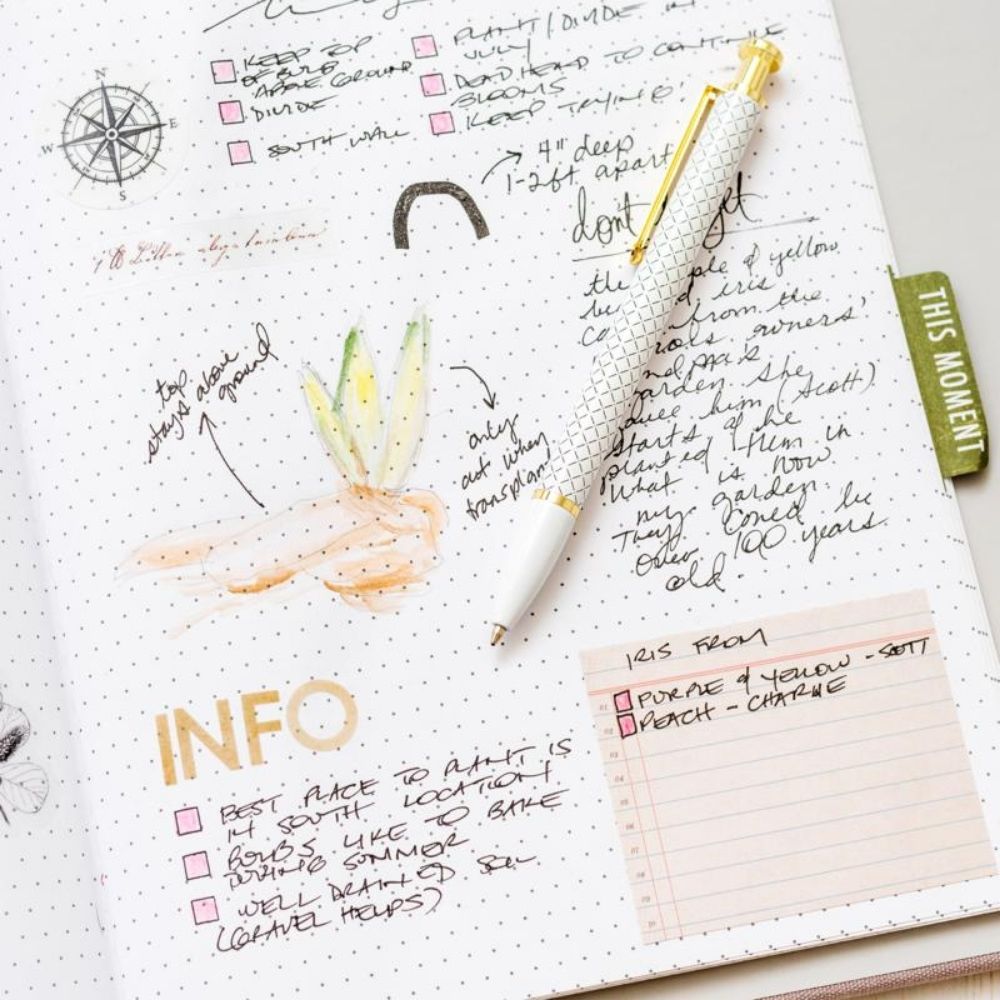 KEEP TOP
OF BULB
ABOVE GROUND
DIVIDE
SOUTH WALL
PLANT/DIVIDE IN
JULY
DEADHEAD TO CONTINUE
BLOOMS
KEEP TRYING!
N
E
S
W
4" deep
1-2ft apart
don't
the yellow
iris
from the
owners'
garden. She
gave him (Scott)
starts & he
planted them in
what is now
my garden.
They could be
over 100 years
old.
THIS MOMENT
top
stays above
ground
only
cut when
IRIS FROM
PURPLE & YELLOW - SCOTT
PEACH - CHARLIE
INFO
BEST PLACE TO PLANT IS
IN SOUTH LOCATION
BULBS LIKE TO BAKE
DURING SUMMER
WELL DRAINED SOIL
(GRAVEL HELPS)